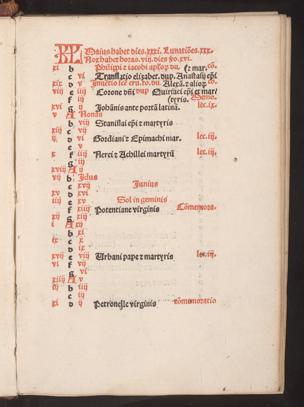 KL Maius habet dies.xxxi. Lunatiões.xxx.
Nox habet horas.viij. dies vo.xvi.
xi b Philippi et iacobi aplor. du. et mar. cō.
c vi Translatio elizabet. dup. Anastasij epi
xix d v Inuētio sc̄e cru. to. du. Alexā. et alior. cō.
viij e iiij Corone dn̄i dup Quiriaci epī et mar/
f iij tyris. Cōmo.
xvi g ij Johānis ante portā latinā. lec. ix.
v A Nonas
b viij Stanislai epī et martyris
xiij c vij
ij d vi Gordiani et Epimachi mar. lec. iij.
e v
x f iiij Nerei et Achillei martyrū lec. iij.
g iij
xviij A ij
vij b Idus
c xvij Junius
xv d xvi
iiij e xv
f xiiij Sol in geminis
xij g xiij Potentiane virginis Cōmemora.
i A xij
b xi
ix c x
d ix
xvij e viij Urbani pape et martyris lec. iij.
vi f vij
g vi
xiiij A v
iij b iiij
c iij
xi d ij Petronelle virginis cōmemoratio